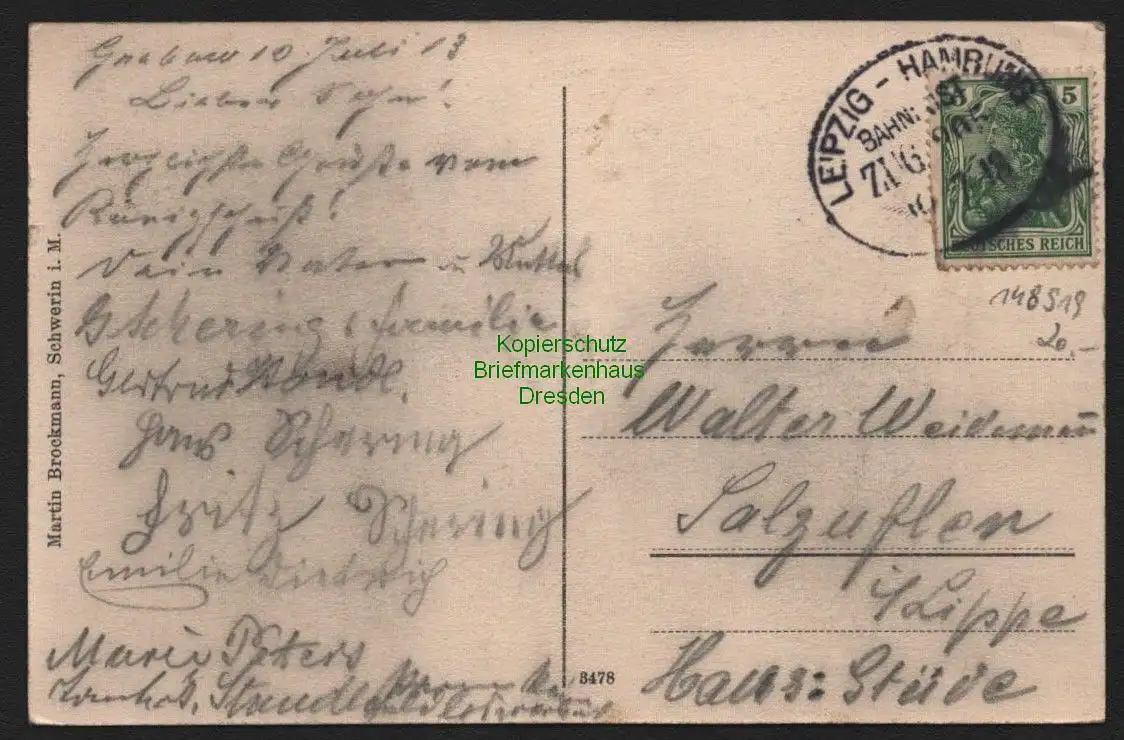 Grabow 10 Juli 13
Lieber Sohn!
Herzlichste Grüße vom
Königschuß!
Dein Vater u Mutter
G. Schering & Familie
Gertrud
Hans Schering
Fritz Schering
Emilie Dietrich
Marie Peters
Martin Brockmann, Schwerin i. M.
3478
LEIPZIG - HAMBURG
BAHNPOST
ZUG
5
DEUTSCHES REICH
148919
20,-
Herrn
Walter Weidemann
Salzuflen
i/Lippe
Haus: Stüve
Kopierschutz
Briefmarkenhaus
Dresden